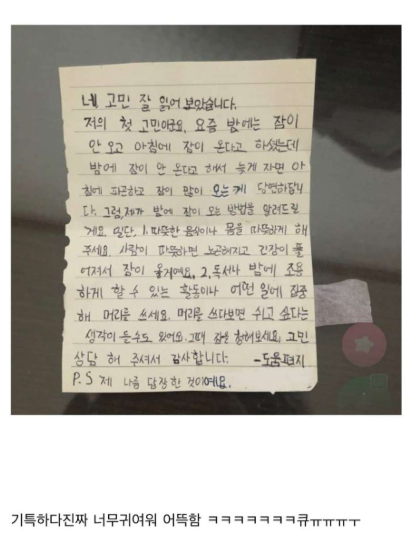 네 고민 잘 읽어 보았습니다.
저의 첫 고민이군요, 요즘 밤에는 잠이
안 오고 아침에 잠이 온다고 하셨는데
밤에 잠이 안 온다고 해서 늦게 자면 아
침에 피곤하고 잠이 많이 오는게 당연하답니
다. 그럼, 제가 밤에 잠이 오는 방법을 알려드릴
게요. 일단, 1. 따뜻한 음식이나 몸을 따뜻하게 해
주세요. 사람이 따뜻하면 노곤해지고 긴장이 풀
어져서 잠이 올거예요, 2. 독서나 밤에 조용
하게 할 수 있는 활동이나 어떤 일에 집중
해 머리를 쓰세요. 머리를 쓰다보면 쉬고 싶다는
생각이 들수도 있어요. 그때 잠을 청해보세요, 고민
상담 해 주셔서 감사합니다. -도움편지
P.S 제 나름 답장한 것이예요.
기특하다진짜 너무귀여워 어뜩함 ㅋㅋㅋㅋㅋㅋㅋ큐ㅠㅠㅠㅜ